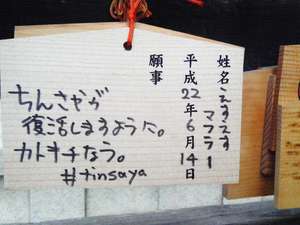 姓名 えすえす
マフラー
平成22年6月14日
願事
ちんさやが
復活しますように。
カトキチなう。
#tinsaya